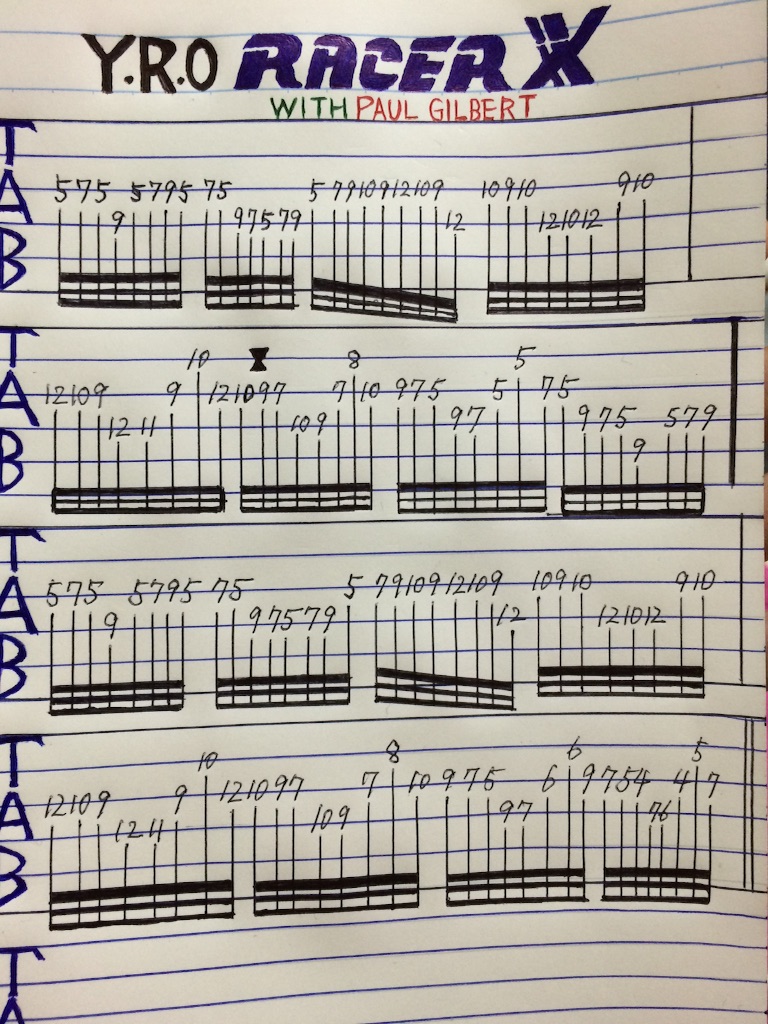 Y.R.O RACER X
WITH PAUL GILBERT
T
A
B
575 5795 75 5 7910912109 10910 910
9 97579 12 121012
T
A
B
10 8 5
12109 9 121097 7 10 975 5 75
12 11 109 97 975 579
9
T
A
B
575 5795 75 5 79109 12109 10910 910
9 97579 12 121012
T
A
B
10 8 6 5
12109 9 121097 7 10 975 6 9754 4 7
12 11 109 97 76
T
A